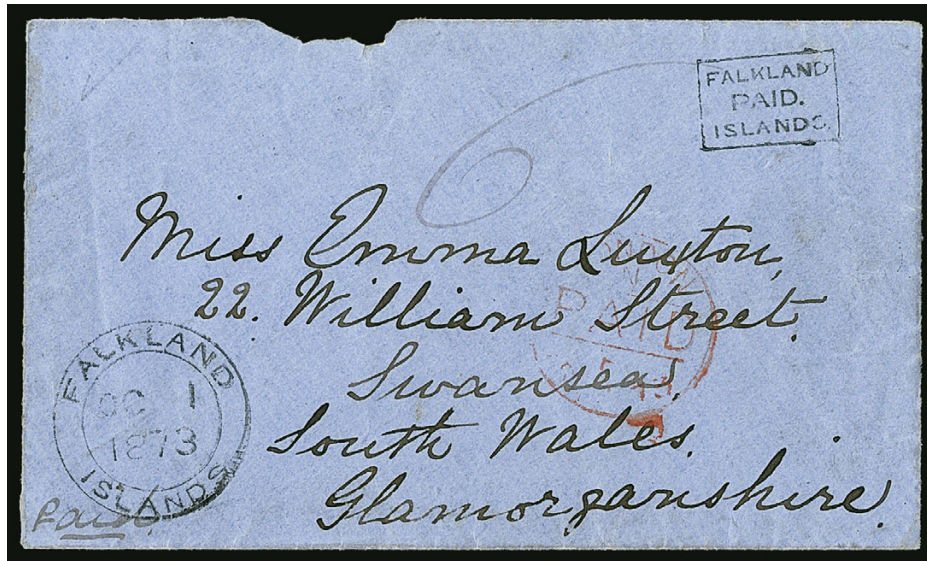 FALKLAND
PAID.
ISLANDS.
6
Miss Emma Luxton,
22. William Street.
Swansea.
South Wales.
Glamorganshire.
PAID
FALKLAND
OC 1
1873
ISLANDS
Paid